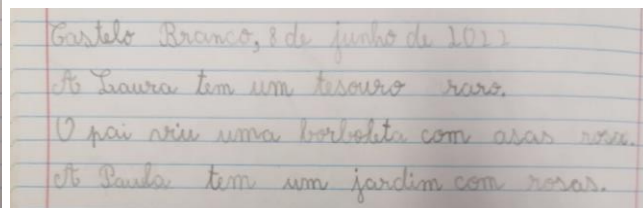 Castelo Branco, 8 de junho de 2022
A Laura tem um tesouro raro.
O pai viu uma borboleta com asas rosa.
A Paula tem um jardim com rosas.